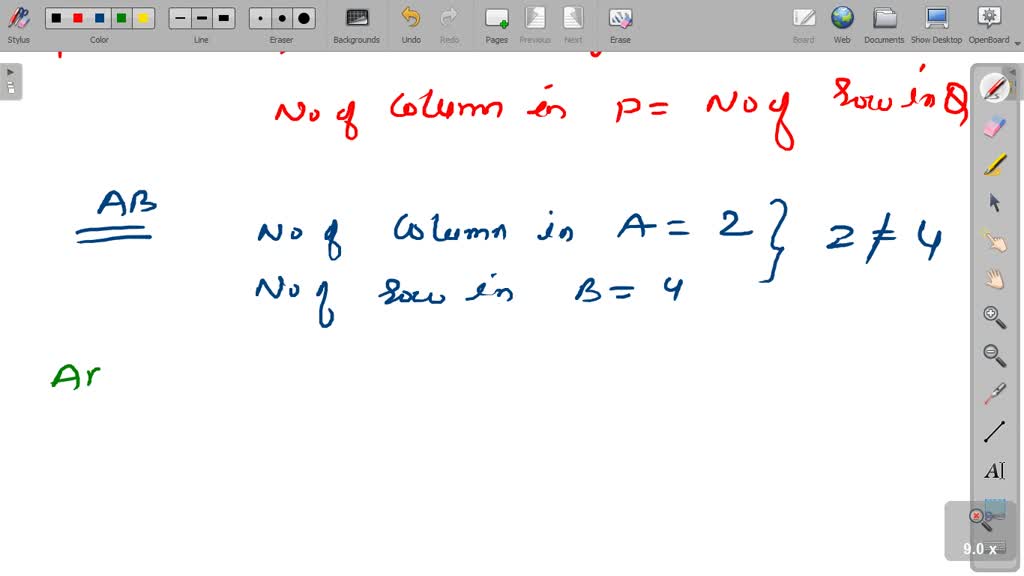 Stylus Color Line Eraser Backgrounds Undo Redo Pages Previous Next Erase Board Web Documents Show Desktop OpenBoard
No of column in P = No of row in Q
AB
No of column in A = 2 } 2 ≠ 4
No of row in B = 4
Ar
AI
9.0 x